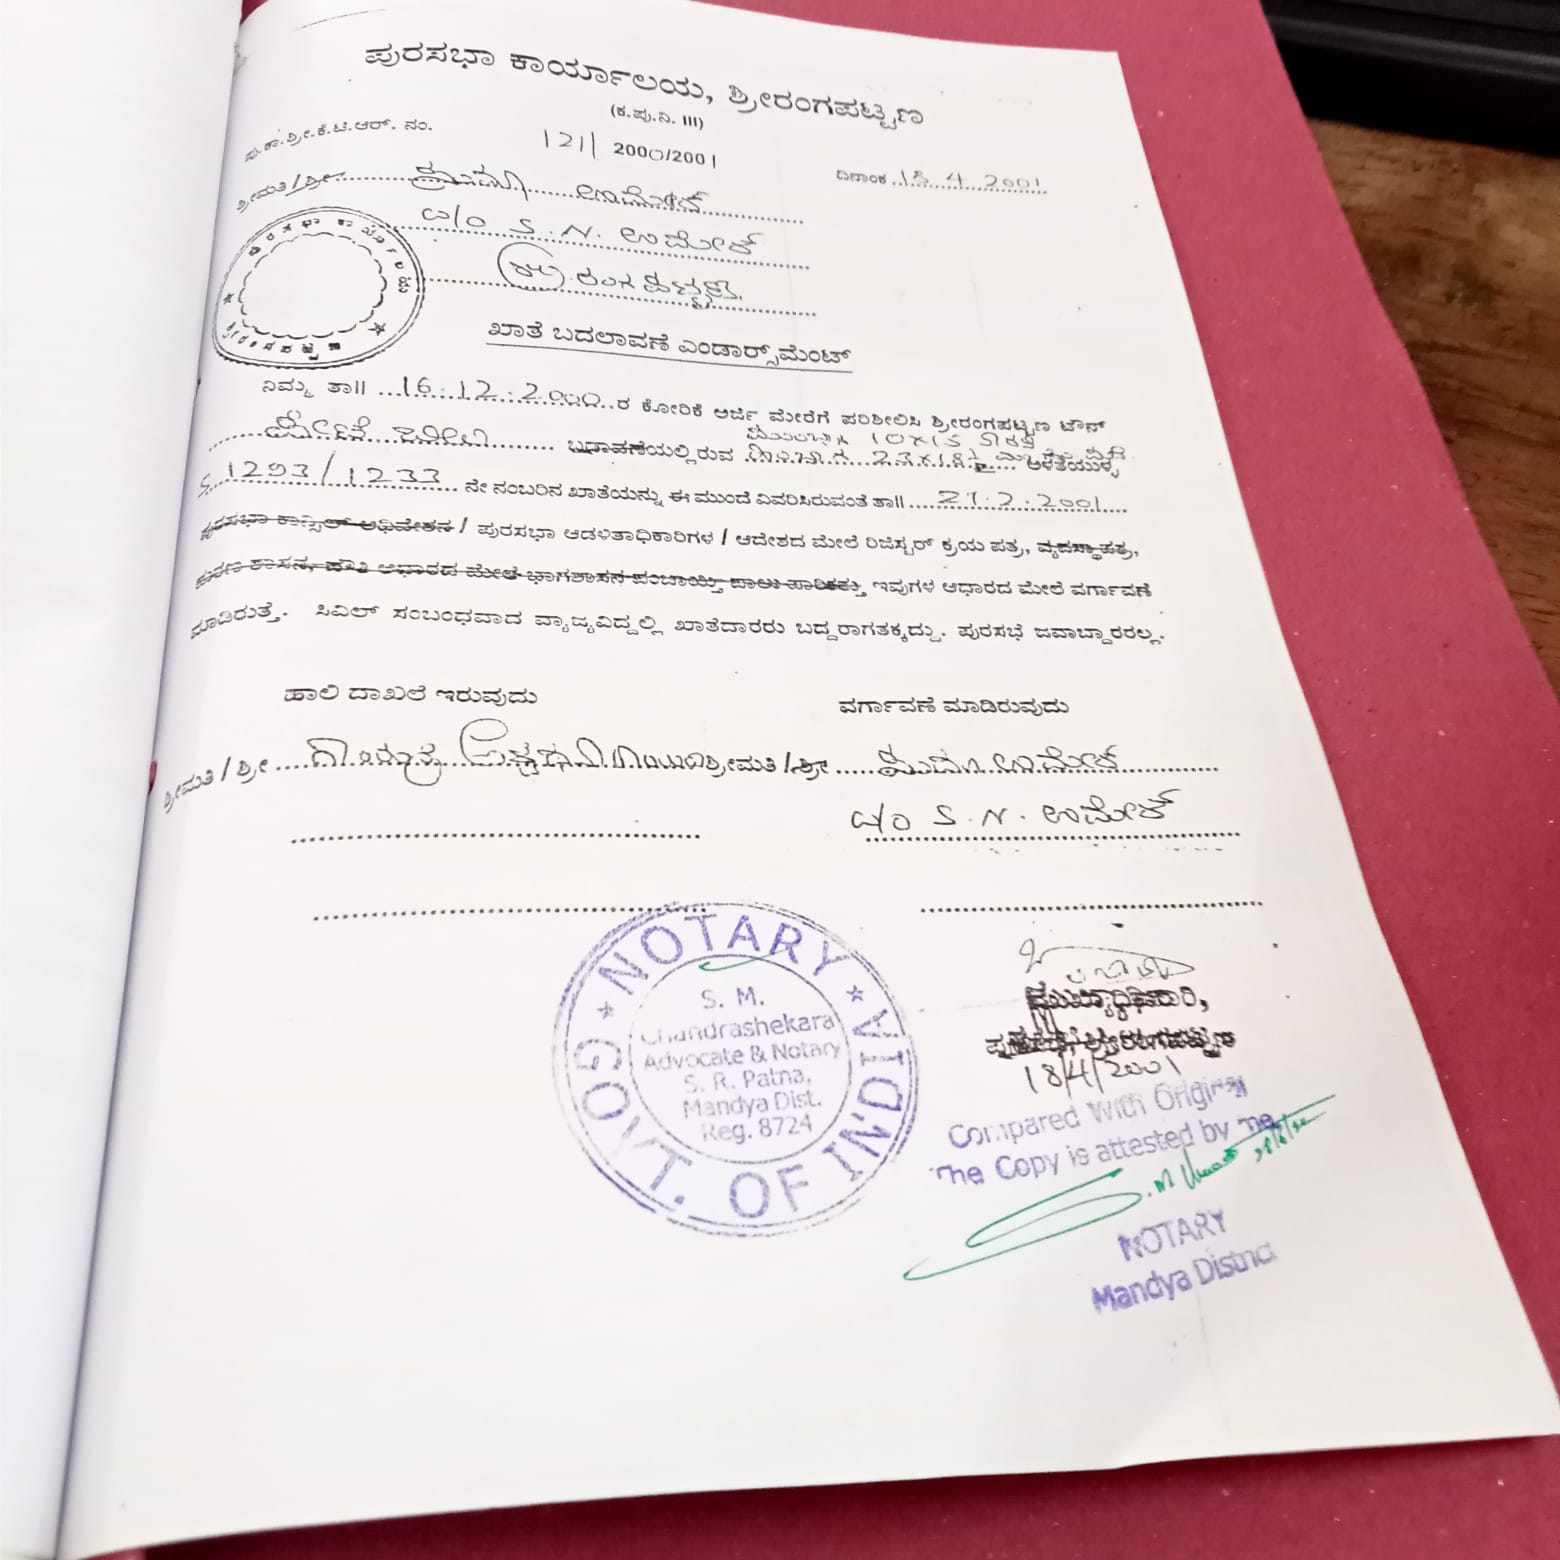 ಪುರಸಭಾ ಕಾರ್ಯಾಲಯ, ಶ್ರೀರಂಗಪಟ್ಟಣ
(ಕ.ಪು.ನಿ. III)
ಪು.ಕಾ.ಶ್ರೀ.ಕೆ.ಟಿ.ಆರ್. ನಂ. 121/ 2000/2001
ದಿನಾಂಕ 18.4.2001
ಶ್ರೀಮತಿ/ಶ್ರೀ ಉಮೇಶ್
W/O S.N. ಉಮೇಶ್
ಶ್ರೀರಂಗಪಟ್ಟಣ
ಪುರಸಭಾ ಕಾರ್ಯಾಲಯ
ಶ್ರೀರಂಗಪಟ್ಟಣ
ಖಾತೆ ಬದಲಾವಣೆ ಎಂಡಾರ್ಸ್‌ಮೆಂಟ್
ನಿಮ್ಮ ತಾ|| 16.12.2000 ರ ಕೋರಿಕೆ ಅರ್ಜಿ ಮೇರೆಗೆ ಪರಿಶೀಲಿಸಿ ಶ್ರೀರಂಗಪಟ್ಟಣ ಟೌನ್
10x13
ಬಡಾವಣೆಯಲ್ಲಿರುವ 23x18½ ಅಳತೆಯುಳ್ಳ
1293/1233 ನೇ ನಂಬರಿನ ಖಾತೆಯನ್ನು ಈ ಮುಂದೆ ವಿವರಿಸಿರುವಂತೆ ತಾ|| 27.2.2001
ಪುರಸಭಾ ಕಾನ್ಸಿಲ್ ಅಧಿವೇಶನ / ಪುರಸಭಾ ಆಡಳಿತಾಧಿಕಾರಿಗಳ / ಆದೇಶದ ಮೇಲೆ ರಿಜಿಸ್ಟರ್ ಕ್ರಯ ಪತ್ರ, ವ್ಯವಸ್ಥಾಪತ್ರ,
ಆಧಾರದ ಮೇಲೆ ಭಾಗಶಾಸನ ಪಂಚಾಯ್ತಿ ಪಾಲು ಪಾರಿಕತ್ತು ಇವುಗಳ ಆಧಾರದ ಮೇಲೆ ವರ್ಗಾವಣೆ
ಮಾಡಿರುತ್ತೆ. ಸಿವಿಲ್ ಸಂಬಂಧವಾದ ವ್ಯಾಜ್ಯವಿದ್ದಲ್ಲಿ ಖಾತೆದಾರರು ಬದ್ದರಾಗತಕ್ಕದ್ದು. ಪುರಸಭೆ ಜವಾಬ್ದಾರರಲ್ಲ.
ಹಾಲಿ ದಾಖಲೆ ಇರುವುದು
ವರ್ಗಾವಣೆ ಮಾಡಿರುವುದು
ಶ್ರೀಮತಿ / ಶ್ರೀ
ಶ್ರೀಮತಿ / ಶ್ರೀ ಉಮೇಶ್
W/O S.N. ಉಮೇಶ್
ಮುಖ್ಯಾಧಿಕಾರಿ,
ಪುರಸಭೆ, ಶ್ರೀರಂಗಪಟ್ಟಣ
18/4/2001
NOTARY
GOVT. OF INDIA
S. M.
Chandrashekara
Advocate & Notary
S. R. Patna,
Mandya Dist.
Reg. 8724
Compared With Original
The Copy is attested by me
NOTARY
Mandya District